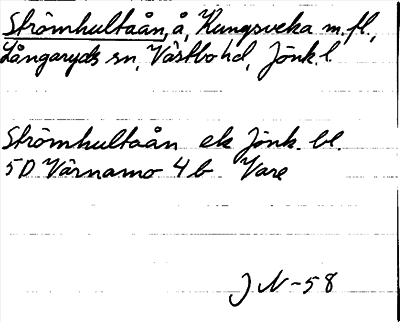 Strömhultaån, å, Kungsveka m.fl.,
Långaryds sn, Västbo hd, Jönk. l.
Strömhultaån ek Jönk. bl.
5D Värnamo 4b Vare
J N-58